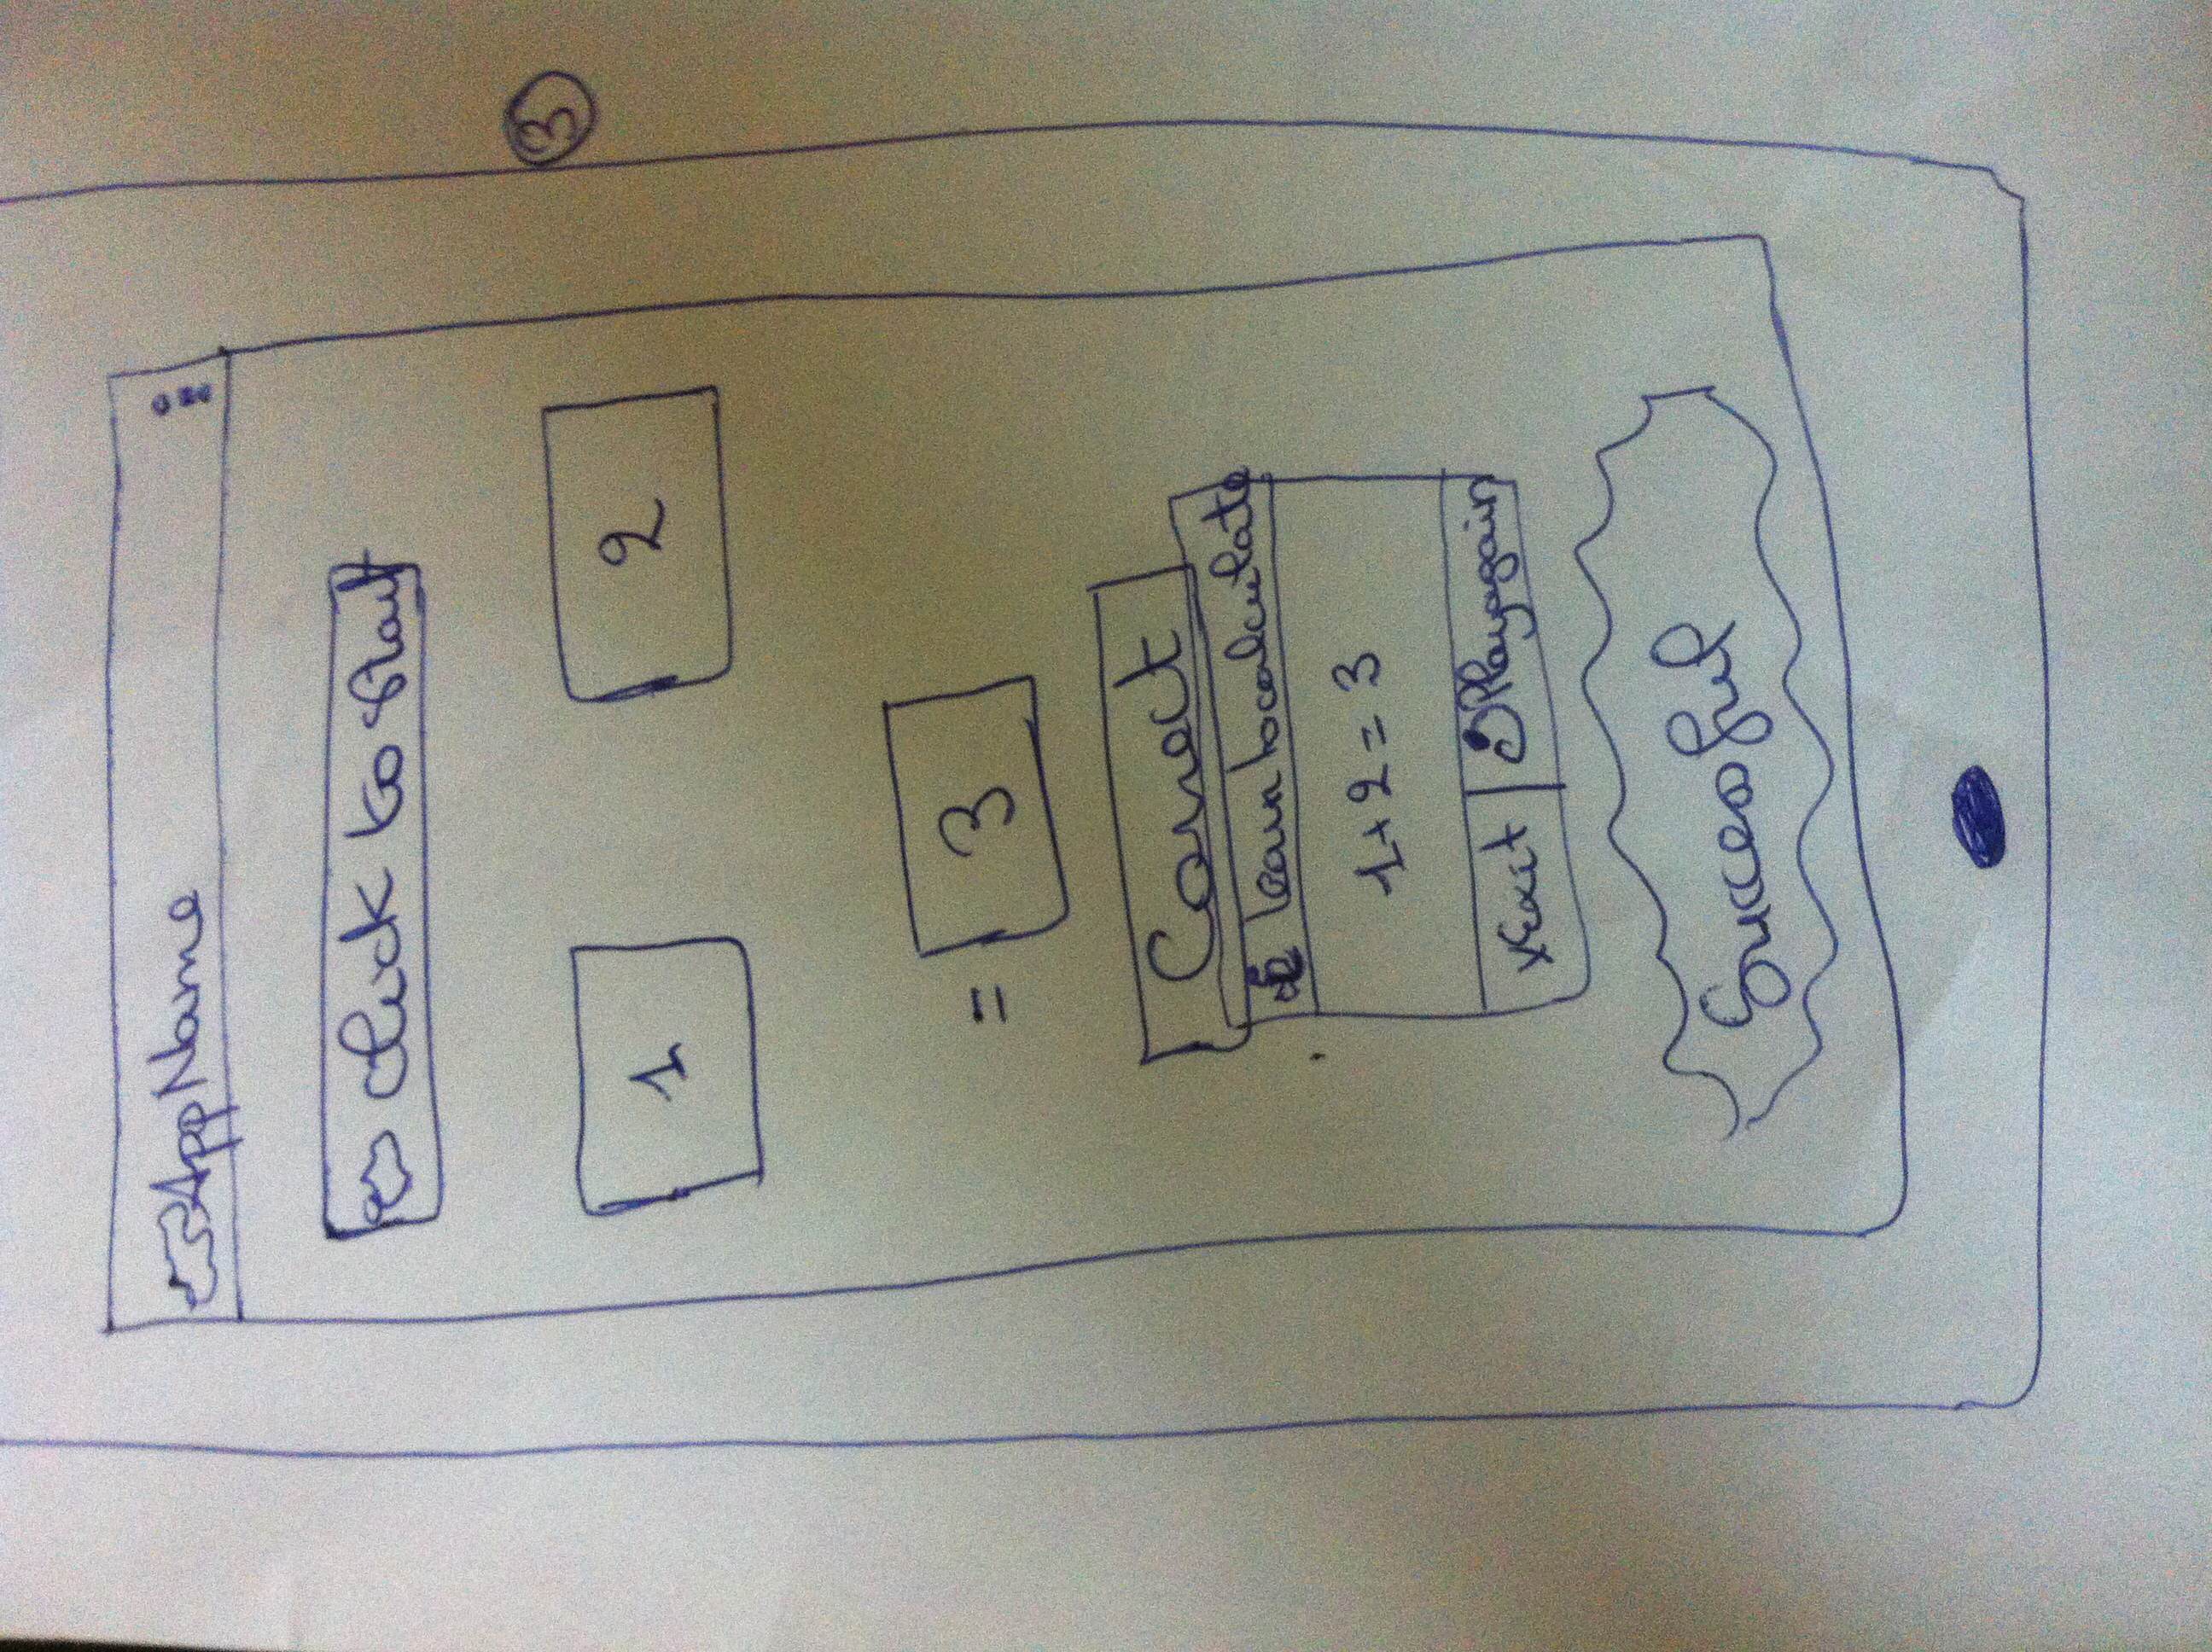 AppName
Click to start
3
1 2
= 3
Correct
learn to calculate
1+2=3
x Exit Play again
Successful